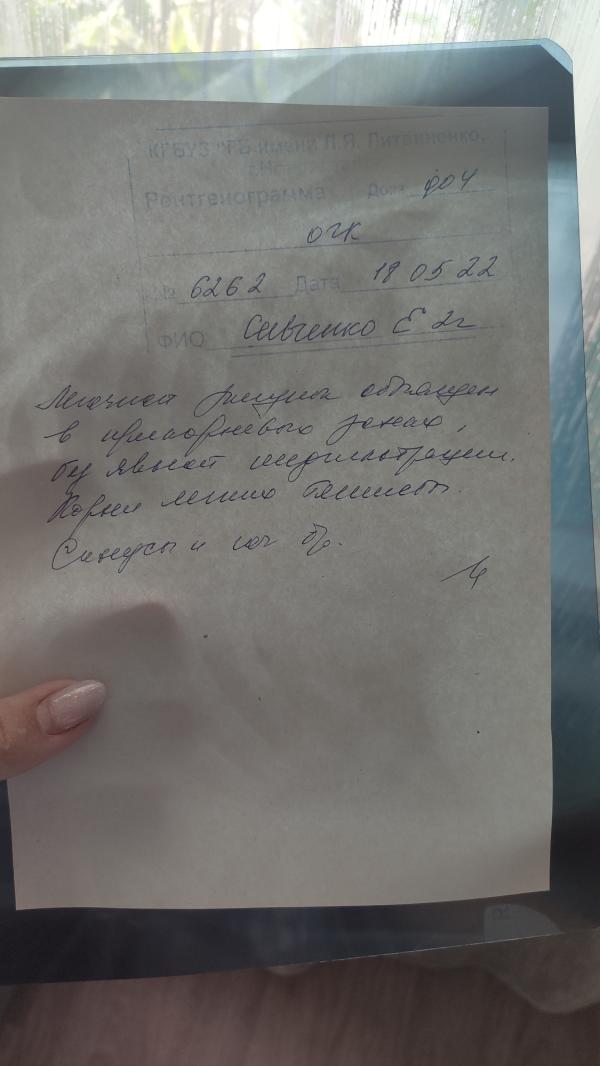 КГБУЗ "ГБ имени Л.Я. Литвиненко,
Рентгенограмма Доза 004
ОГК
№ 6262 Дата 18 05 22
ФИО Савченко Е 2г
Легочной рисунок обогащен
в прикорневых зонах,
без явной инфильтрации.
Корни легких
Синусы